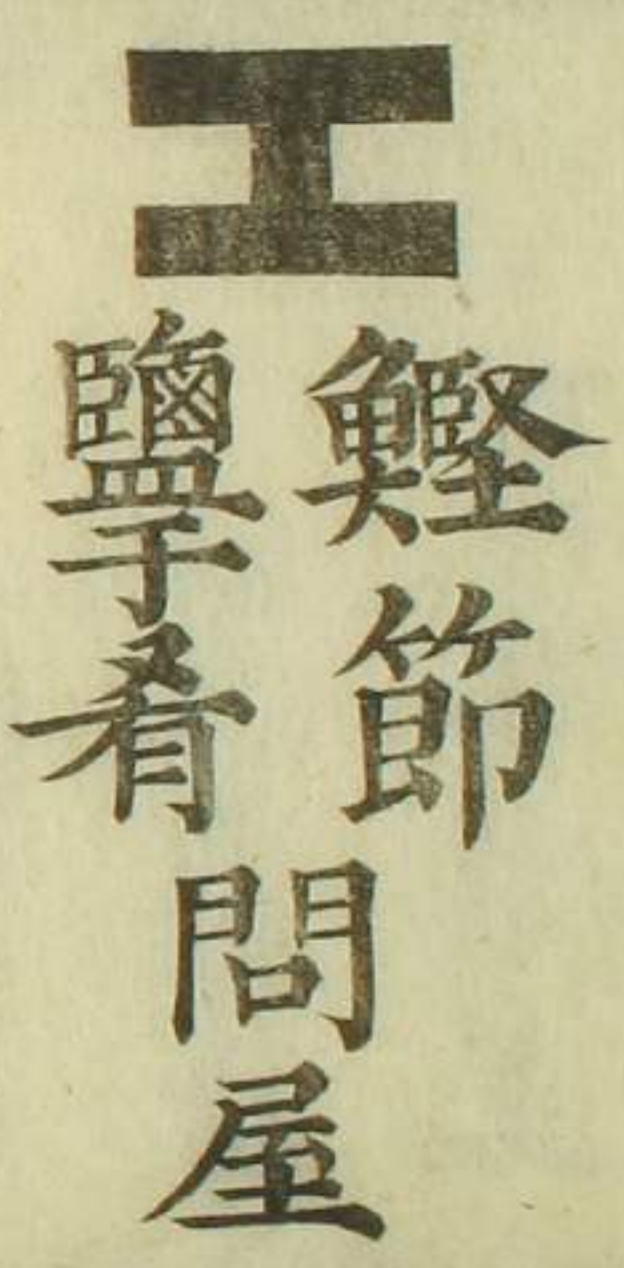 エ
鰹節
鹽干肴
問屋